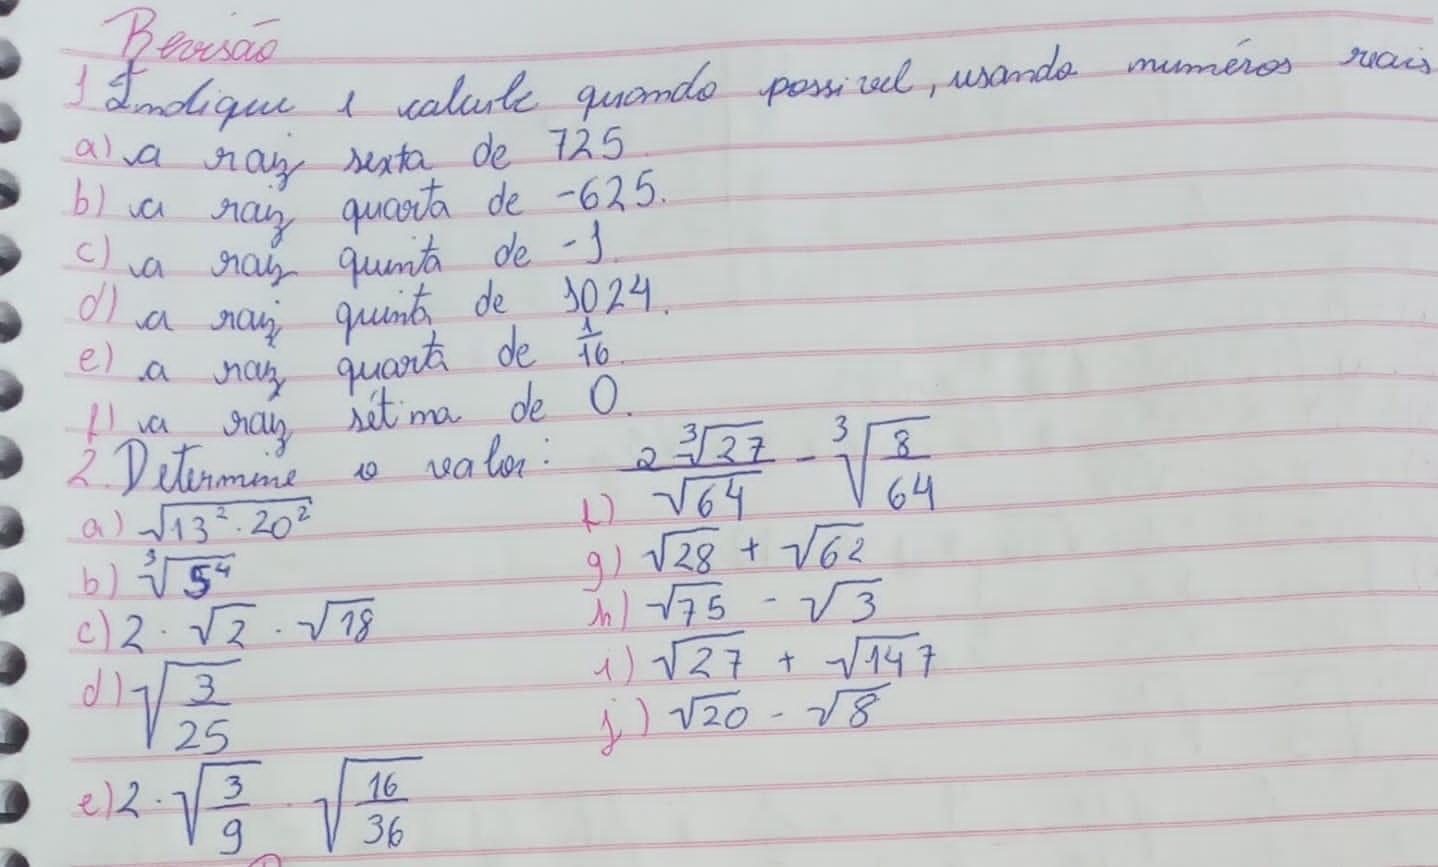 Revisão
1 Indique e calcule quando possivel, usando numéros reais
a) a raiz sexta de 725
b) a raiz quarta de -625.
c) a raiz quinta de -1.
d) a raiz quinta de 1024.
e) a raiz quarta de 1/16.
f) a raiz sétima de 0.
2. Determine o valor:
a) √13² · 20²
b) ³√5⁴
c) 2 · √2 · √18
d) √3/25
e) 2 · √3/9 · √16/36
f) 2 ³√27/√64 - ³√8/64
g) √28 + √62
h) √75 - √3
i) √27 + √147
j) √20 - √8